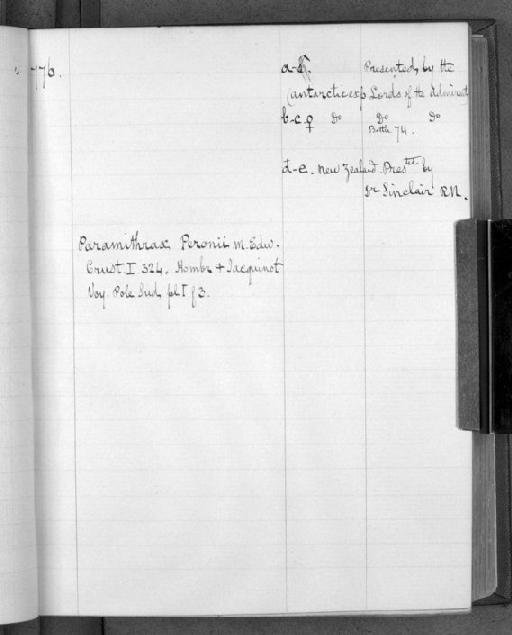 776.
a-
Presented by the
(antarctic exp Lords of the Admiralt
b-c ♀ do do do
Bottle 74.
d-e. New Zealand. Prested. by
Dr Sinclair R.N.
Paramithrax Peronii M. Edw.
Crust. I 324. Hombr + Jacquinot
Voy. Pole Sud, pl I f 3.